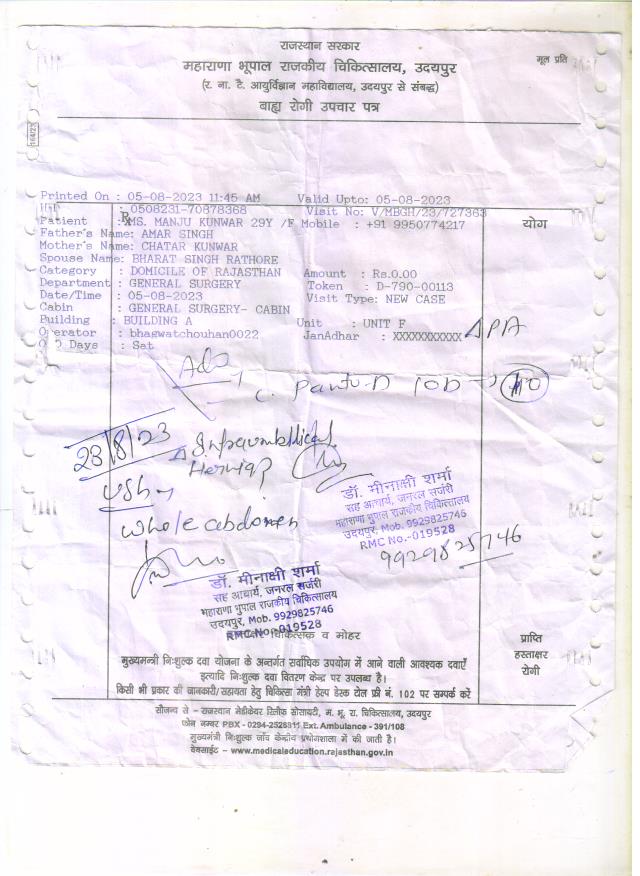 राजस्थान सरकार
महाराणा भूपाल राजकीय चिकित्सालय, उदयपुर
मूल प्रति
(र. ना. टै. आयुर्विज्ञान महाविद्यालय, उदयपुर से संबद्ध)
बाह्य रोगी उपचार पत्र
Printed On : 05-08-2023 11:45 AM Valid Upto: 05-08-2023
: 0508231-70878368 Visit No: V/MBGH/23/727363
Patient : MS. MANJU KUNWAR 29Y /F Mobile : +91 9950774217
योग
Father's Name: AMAR SINGH
Mother's Name: CHATAR KUNWAR
Spouse Name: BHARAT SINGH RATHORE
Category : DOMICILE OF RAJASTHAN Amount : Rs.0.00
Department : GENERAL SURGERY Token : D-790-00113
Date/Time : 05-08-2023 Visit Type: NEW CASE
Cabin : GENERAL SURGERY- CABIN
Building : BUILDING A Unit : UNIT F
Operator : bhagwatchouhan0022 JanAadhar : XXXXXXXXXXX
Days : Sat
Adv
C. Panto-D 1OD → 10
23/8/23
Infraumbilical
Hernia?
USG →
whole abdomen
डॉ. मीनाक्षी शर्मा
सह आचार्य, जनरल सर्जरी
महाराणा भुपाल राजकीय चिकित्सालय
उदयपुर, Mob. 9929825746
RMC No.-019528
9929825746
डॉ. मीनाक्षी शर्मा
सह आचार्य, जनरल सर्जरी
महाराणा भुपाल राजकीय चिकित्सालय
उदयपुर, Mob. 9929825746
RMC No.-019528
चिकित्सक व मोहर
प्राप्ति
हस्ताक्षर
रोगी
मुख्यमन्त्री निःशुल्क दवा योजना के अन्तर्गत सर्वाधिक उपयोग में आने वाली आवश्यक दवाएँ
इत्यादि निःशुल्क दवा वितरण केन्द्र पर उपलब्ध है।
किसी भी प्रकार की जानकारी/सहायता हेतु चिकित्सा मंत्री हेल्प डेस्क टोल फ्री नं. 102 पर सम्पर्क करें
सौजन्य से - राजस्थान मेडीकेयर रिलीफ सोसायटी, म. भू. रा. चिकित्सालय, उदयपुर
फोन नम्बर PBX - 0294-2528811 Ext. Ambulance - 391/108
मुख्यमंत्री निःशुल्क जाँच केन्द्रीय प्रयोगशाला में की जाती है।
वेबसाईट - www.medicaleducation.rajasthan.gov.in